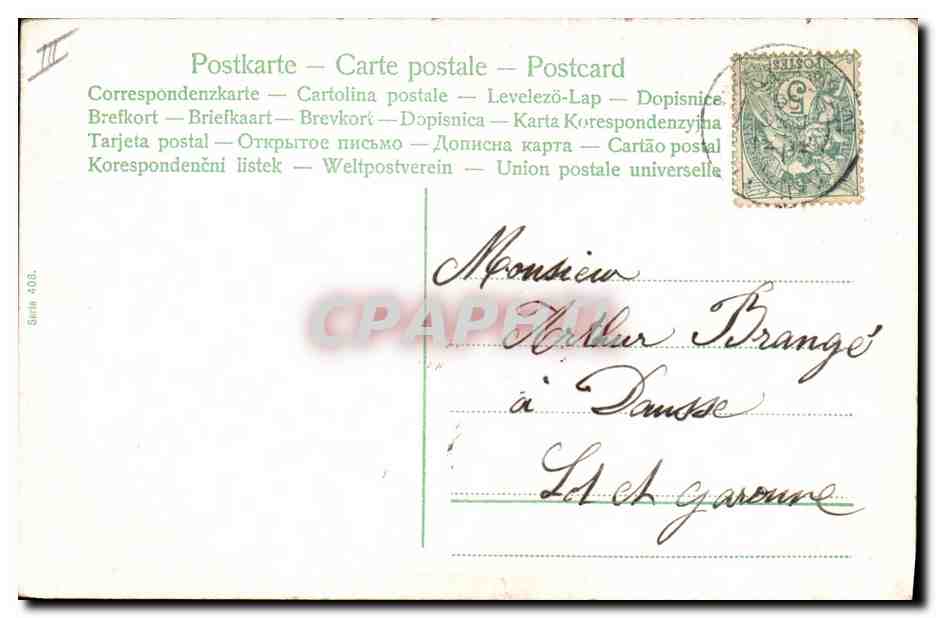 III
Postkarte – Carte postale – Postcard
Correspondenzkarte — Cartolina postale — Levelező-Lap — Dopisnice
Brefkort — Briefkaart — Brevkort — Dopisnica — Karta Korespondenzyjna
Tarjeta postal — Открытое письмо — Дописна карта — Cartão postal
Korespondenčni listek — Weltpostverein — Union postale universelle
POSTES
5
Serie 408.
CPAPHIL
Monsieur
Arthur Brangé
à Dausse
Lot et Garonne